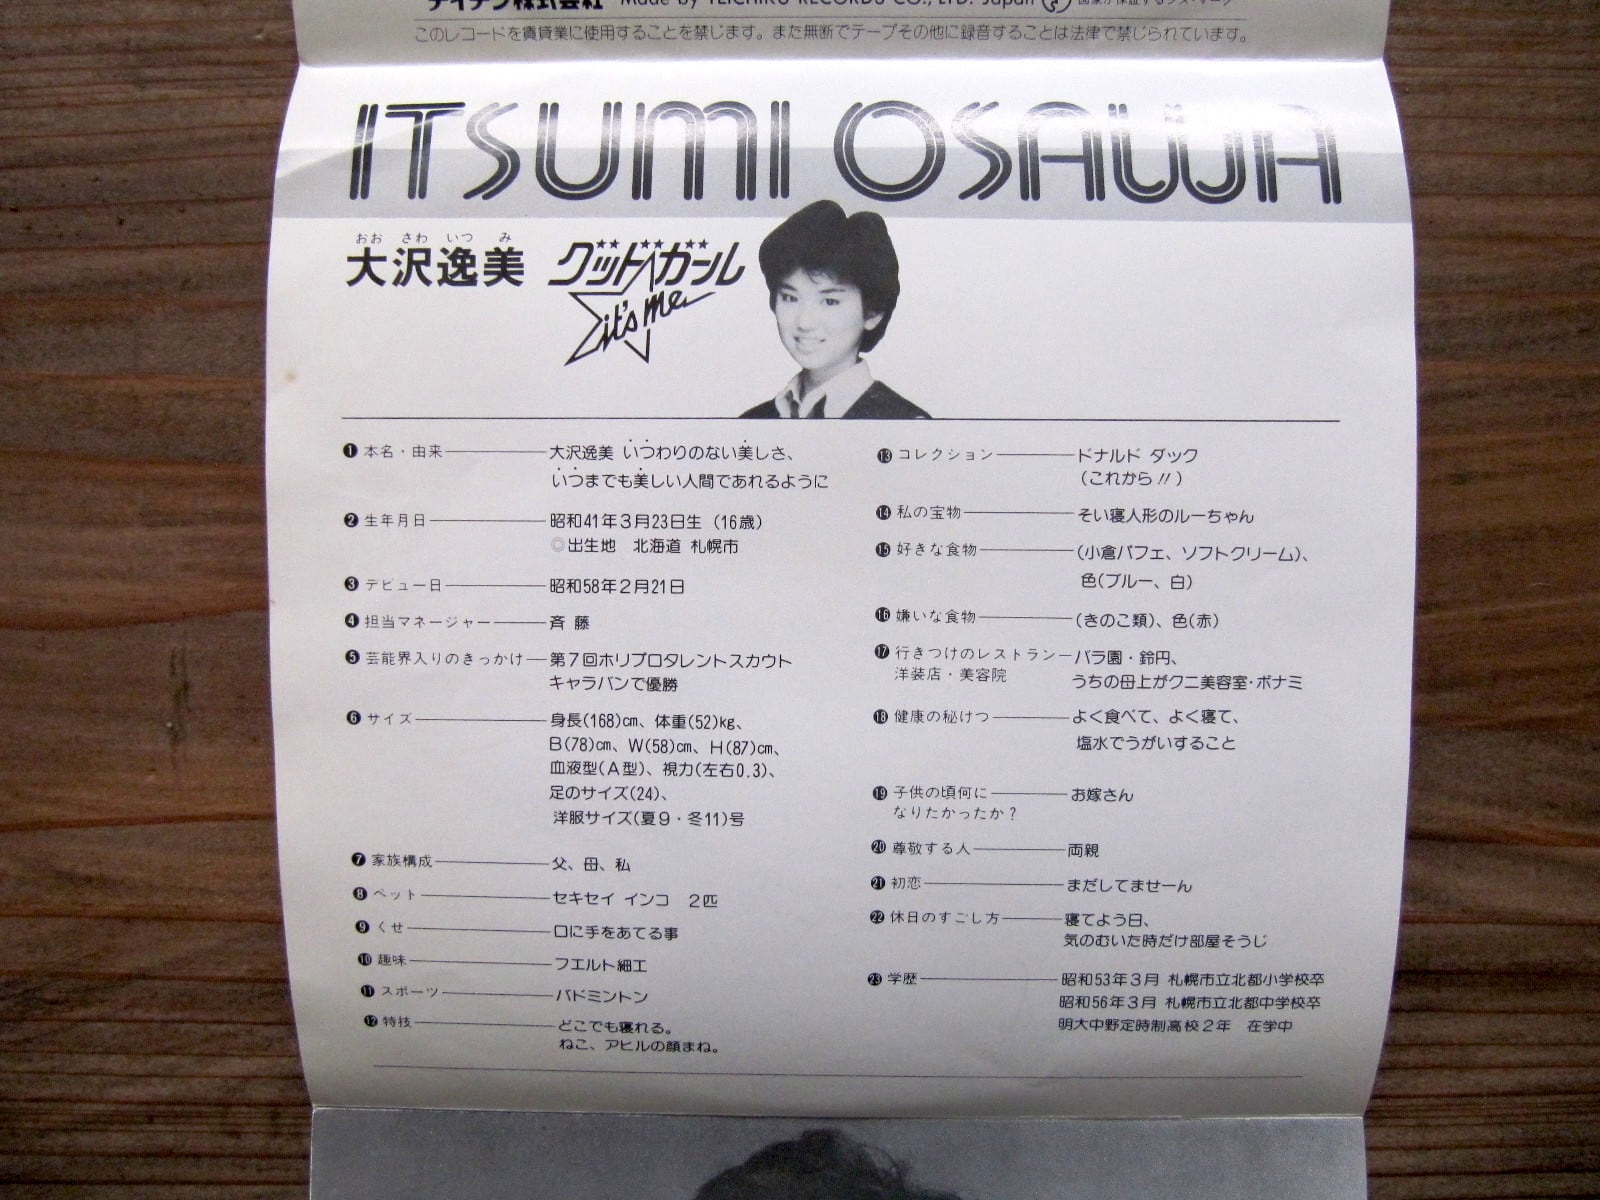 テイチク株式会社 Made by TEICHIKU RECORDS CO., LTD. Japan
このレコードを賃貸業に使用することを禁じます。また無断でテープその他に録音することは法律で禁じられています。
ITSUMI OSAWA
おお さわ いつ み
大沢逸美
グッド・ガール
it's me
❶本名・由来 大沢逸美 いつわりのない美しさ、
いつまでも美しい人間であれるように
❷生年月日 昭和41年3月23日生 (16歳)
◎出生地 北海道 札幌市
❸デビュー日 昭和58年2月21日
❹担当マネージャー 斉藤
❺芸能界入りのきっかけ 第7回ホリプロタレントスカウト
キャラバンで優勝
❻サイズ 身長(168)cm、体重(52)kg、
B(78)cm、W(58)cm、H(87)cm、
血液型(A型)、視力(左右0.3)、
足のサイズ(24)、
洋服サイズ(夏9・冬11)号
❼家族構成 父、母、私
❽ペット セキセイ インコ 2匹
❾くせ 口に手をあてる事
❿趣味 フエルト細工
⓫スポーツ バドミントン
⓬特技 どこでも寝れる。
ねこ、アヒルの顔まね。
⓭コレクション ドナルド ダック
(これから!!)
⓮私の宝物 そい寝人形のルーちゃん
⓯好きな食物 (小倉パフェ、ソフトクリーム)、
色(ブルー、白)
⓰嫌いな食物 (きのこ類)、色(赤)
⓱行きつけのレストラン バラ園・鈴円、
洋装店・美容院 うちの母上がクニ美容室・ボナミ
⓲健康の秘けつ よく食べて、よく寝て、
塩水でうがいすること
⓳子供の頃何に お嫁さん
なりたかったか?
⓴尊敬する人 両親
㉑初恋 まだしてませーん
㉒休日のすごし方 寝てよう日、
気のむいた時だけ部屋そうじ
㉓学歴 昭和53年3月 札幌市立北都小学校卒
昭和56年3月 札幌市立北都中学校卒
明大中野定時制高校2年 在学中